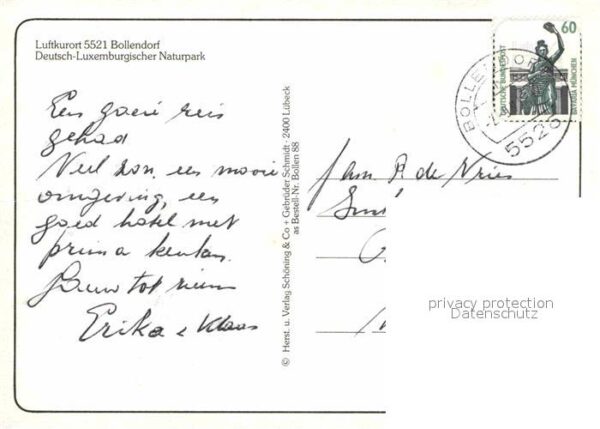 Luftkurort 5521 Bollendorf
Deutsch-Luxemburgischer Naturpark
60
DEUTSCHE BUNDESPOST
BAVARIA MÜNCHEN
BOLLENDORF
5526
Een goeie reis
gehad
Veel zon, een mooie
omgeving, een
goed hotel met
prima keuken.
tot
Erika + Klaas
© Herst. u. Verlag Schöning & Co + Gebrüder Schmidt · 2400 Lübeck
as Bestell-Nr. Bollen 88
Fam. P. de Vries
privacy protection
Datenschutz